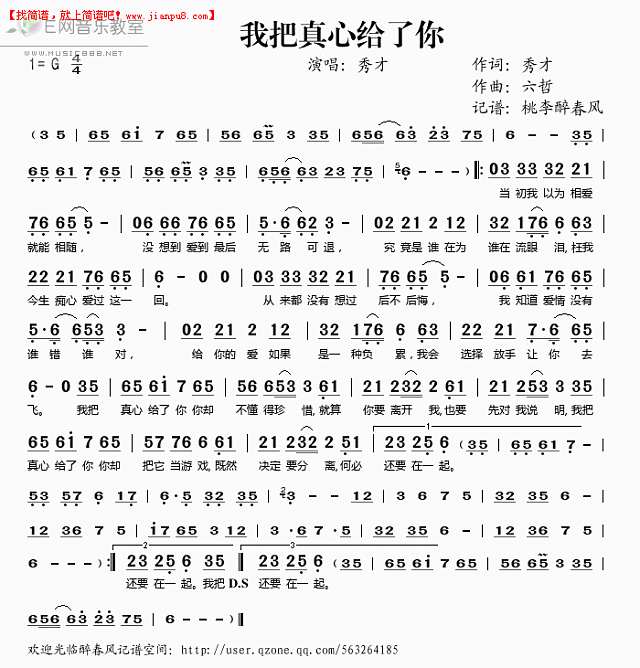 【找简谱，就上简谱吧！www.jianpu8.com】
E网音乐教室
WWW.MUSIC888.NET
我把真心给了你
1=G 4/4
演唱：秀才
作词：秀才
作曲：六哲
记谱：桃李醉春风
(35 | 65 6i 7 65 | 56 65 3 35 | 656 63 23 75 | 6 - - 35
65 61 7 65 | 56 65 3 35 | 656 63 23 75 | 6 - - - ) ‖: 03 33 32 21 |
当 初我 以为 相爱
76 65 5 - | 06 66 76 65 | 5·6 62 3 - | 02 21 2 12 | 32 176 6 63 |
就能 相随， 没 想到 爱到 最后 无 路 可 退， 究 竟是 谁 在为 谁在 流眼 泪,枉我
22 21 76 65 | 6 - - 0 | 03 33 32 21 | 76 65 5 - | 06 61 76 65 |
今生 痴心 爱过 这一 回。 从 来都 没有 想过 后不 后悔， 我 知道 爱情 没有
5·6 653 3 - | 02 21 2 12 | 32 176 6 63 | 22 21 7·6 65 |
谁 错 谁 对， 给 你的 爱 如果 是一 种负 累,我会 选择 放手 让 你 去
6 - 0 35 | 65 61 7 65 | 56 653 3 61 | 21 232 2 61 | 21 253 3 35 |
飞。 我把 真心 给了 你 你却 不懂 得珍 惜,就算 你要 离开 我,也要 先对 我说 明,我把
65 6i 7 65 | 57 76 6 61 | 21 232 2 51 | 1 23 25 6 (35 | 65 61 7 - |
真心 给了 你 你却 把它 当游 戏,既然 决定 要分 离,何必 还要 在一 起。
53 57 6 17 | 6·5 32 35 | 3 - - - | 3 6 7 5 | 32 35 6 - |
12 36 7 5 | i7 65 35 12 | 3 ·6 7· 5 | 35 32 12 35 |
6 - - -) :‖ 2 23 25 6 35 ‖ 3 23 25 6 (35 | 65 61 7 65 | 56 65 3 35 |
还要 在一 起。我把 D.S 还要 在一 起。
656 63 23 75 | 6 - - -) ‖
欢迎光临醉春风记谱空间：http://user.qzone.qq.com/563264185